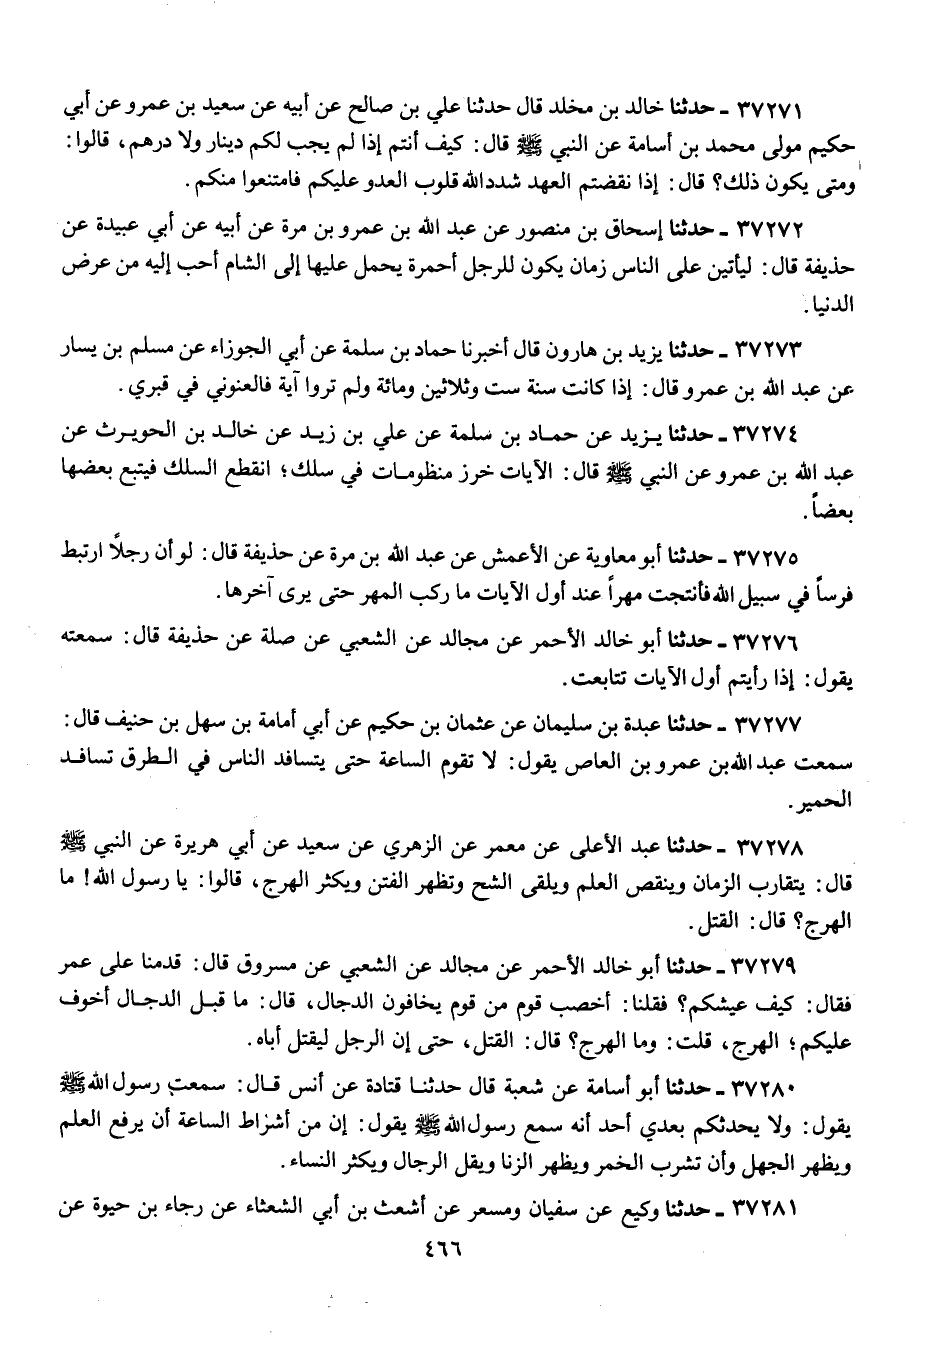 ٣٧٢٧١ ـ حدثنا خالد بن مخلد قال حدثنا علي بن صالح عن أبيه عن سعيد بن عمرو عن أبي
حكيم مولى محمد بن أسامة عن النبي ﷺ قال: كيف أنتم إذا لم يجب لكم دينار ولا درهم، قالوا:
ومتى يكون ذلك؟ قال: إذا نقضتم العهد شدد الله قلوب العدو عليكم فامتنعوا منكم.
٣٧٢٧٢ ـ حدثنا إسحاق بن منصور عن عبد الله بن عمرو بن مرة عن أبيه عن أبي عبيدة عن
حذيفة قال: ليأتين على الناس زمان يكون للرجل أحمرة يحمل عليها إلى الشام أحب إليه من عرض
الدنيا.
٣٧٢٧٣ ـ حدثنا يزيد بن هارون قال أخبرنا حماد بن سلمة عن أبي الجوزاء عن مسلم بن يسار
عن عبد الله بن عمرو قال: إذا كانت سنة ست وثلاثين ومائة ولم تروا آية فالعنوني في قبري.
٣٧٢٧٤ ـ حدثنا يزيد عن حماد بن سلمة عن علي بن زيد عن خالد بن الحويرث عن
عبد الله بن عمرو عن النبي ﷺ قال: الآيات خرز منظومات في سلك؛ انقطع السلك فيتبع بعضها
بعضاً.
٣٧٢٧٥ ـ حدثنا أبو معاوية عن الأعمش عن عبد الله بن مرة عن حذيفة قال: لو أن رجلاً ارتبط
فرساً في سبيل الله فأنتجت مهراً عند أول الآيات ما ركب المهر حتى يرى آخرها.
٣٧٢٧٦ ـ حدثنا أبو خالد الأحمر عن مجالد عن الشعبي عن صلة عن حذيفة قال: سمعته
يقول: إذا رأيتم أول الآيات تتابعت.
٣٧٢٧٧ ـ حدثنا عبدة بن سليمان عن عثمان بن حكيم عن أبي أمامة بن سهل بن حنيف قال:
سمعت عبد الله بن عمرو بن العاص يقول: لا تقوم الساعة حتى يتسافد الناس في الطرق تسافد
الحمير.
٣٧٢٧٨ ـ حدثنا عبد الأعلى عن معمر عن الزهري عن سعيد عن أبي هريرة عن النبي ﷺ
قال: يتقارب الزمان وينقص العلم ويلقى الشح وتظهر الفتن ويكثر الهرج، قالوا: يا رسول الله! ما
الهرج؟ قال: القتل.
٣٧٢٧٩ ـ حدثنا أبو خالد الأحمر عن مجالد عن الشعبي عن مسروق قال: قدمنا على عمر
فقال: كيف عيشكم؟ فقلنا: أخصب قوم من قوم يخافون الدجال، قال: ما قبل الدجال أخوف
عليكم؛ الهرج، قلت: وما الهرج؟ قال: القتل، حتى إن الرجل ليقتل أباه.
٣٧٢٨٠ ـ حدثنا أبو أسامة عن شعبة قال حدثنا قتادة عن أنس قال: سمعت رسول الله ﷺ
يقول: ولا يحدثكم بعدي أحد أنه سمع رسول الله ﷺ يقول: إن من أشراط الساعة أن يرفع العلم
ويظهر الجهل وأن تشرب الخمر ويظهر الزنا ويقل الرجال ويكثر النساء.
٣٧٢٨١ ـ حدثنا وكيع عن سفيان ومسعر عن أشعث بن أبي الشعثاء عن رجاء بن حيوة عن
٤٦٦